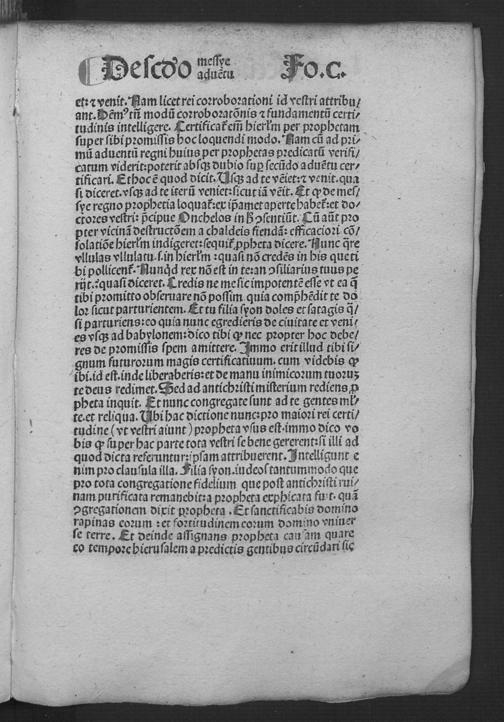 De scḋo messye aduẽtu Fo. C.
et: ⁊ venit. Nam licet rei corroborationi id vestri attribu/
ant. Dẽmꝰ tñ modũ corroboratõnis ⁊ fundamentũ certi/
tudinis intelligere. Certificat̃ em̃ hierl̃m per prophetam
super sibi promissis hoc loquendi modo. Nam cũ ad pri/
mũ aduentũ regni huius per prophetas predicatũ verifi/
catum viderit: poterit absqꝫ dubio suꝑ secũdo aduẽtu cer/
tificari. Et hoc ẽ quod dicit. Usqꝫ ad te vẽiet: ⁊ venit. qua
si diceret. vsqꝫ ad te iterũ veniet: sicut iã vẽit. Et ꝙ de mes/
sye regno prophetia loquat̃: ex ip̃amet aperte habet̃: et do/
ctores vestri: p̃cipue Onchelos in ꝯsentiũt. Cũ aũt pro
pter vicinã destructõem a chaldeis fiendã: efficaciori cõ/
solatiõe hierl̃m indigeret: sequit̃ ꝓpheta dicere. Nunc q̃re
vllulas vllulatu. s. in hierl̃m: quasi nõ credẽs in his que ti
bi pollicent̃. Nunqd̃ rex nõ est in te: an ꝯsiliarius tuus pe
rijt: quasi diceret. Credis ne me sic impotentẽ esse vt ea q̃
tibi promitto obseruare nõ possim. quia comp̃hẽdit te do
lor sicut parturientem. Et tu filia syon doles et satagis q̃/
si parturiens: eo quia nunc egredieris de ciuitate et veni/
es vsqꝫ ad babylonem: dico tibi ꝙ nec propter hoc debe/
res de promissis spem amittere. Immo erit illud tibi si/
gnum futurorum magis certificatiuum. cum videbis ꝙ
ibi. id est. inde liberaberis: et de manu inimicorum tuorum
te deus redimet. Sed ad antichristi misterium rediens ꝓ
pheta inquit. Et nunc congregate sunt ad te gentes ml̃/
te. et reliqua. Ubi hac dictione nunc: pro maiori rei certi/
tudine (vt vestri aiunt) propheta vsus est. immo dico vo
bis ꝙ super hac parte tota vestri se bene gererent: si illi ad
quod dicta referuntur: ipsam attribuerent. Intelligunt e
nim pro clausula illa. Filia syon. iudeos tantummodo que
pro tota congregatione fidelium que post antichristi rui/
nam purificata remanebit: a propheta explicata fuit. quã
ꝯgregationem dixit propheta. Et sanctificabis domino
rapinas eorum: et fortitudinem eorum domino vniuer
se terre. Et deinde assignans propheta causam quare
eo tempore hierusalem a predictis gentibus circũdari sic